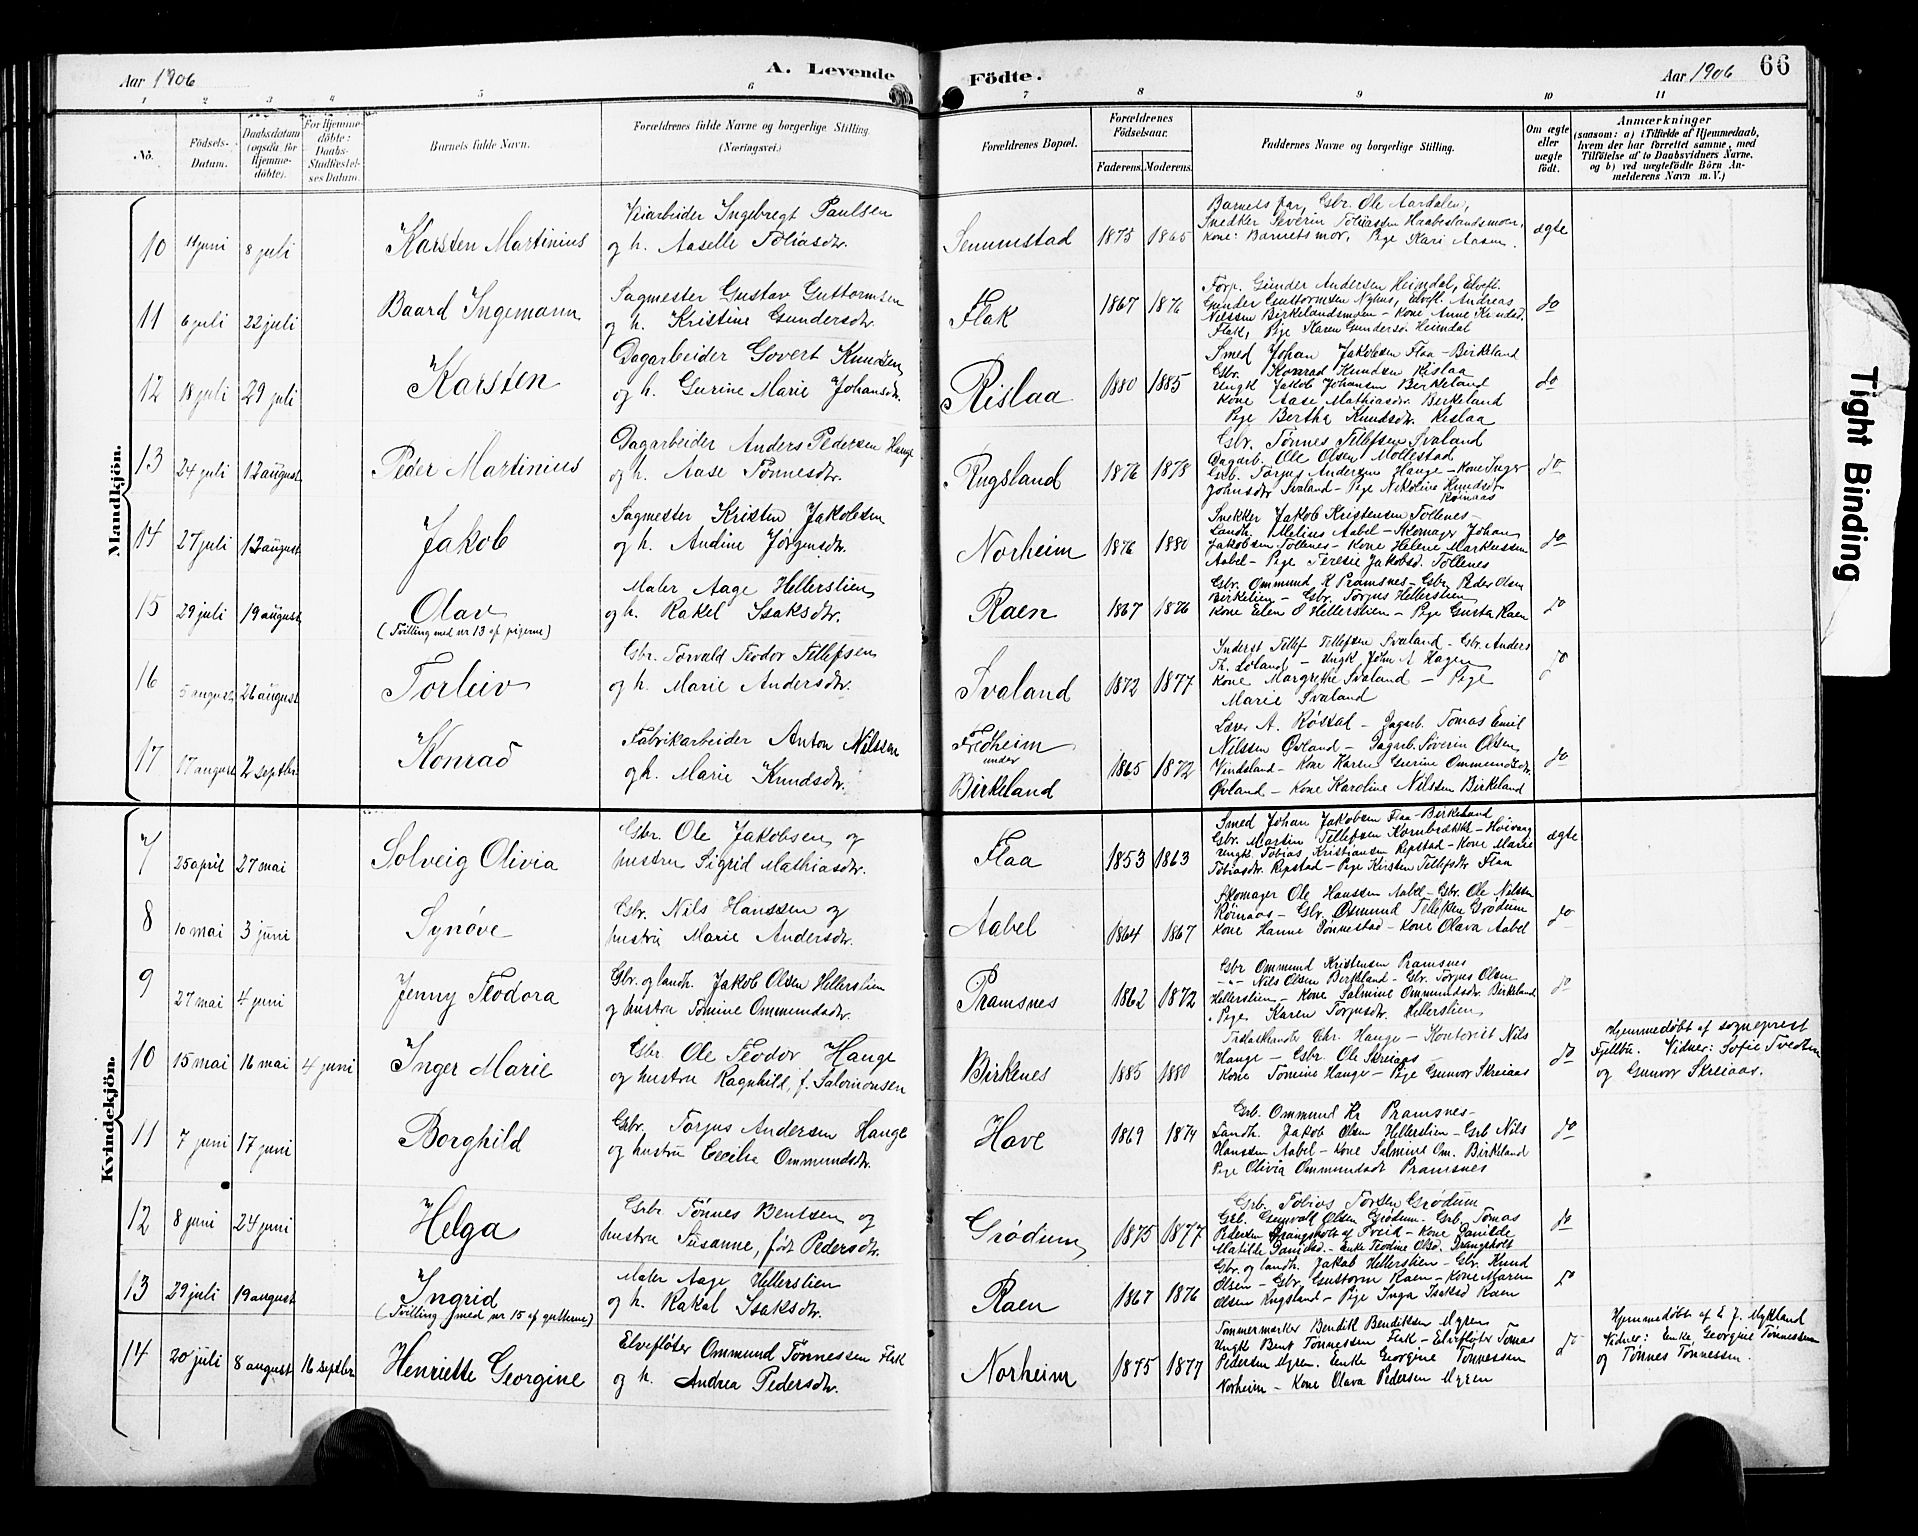 Aar 1906
A. Levende
Födte.
Aar 1906
66
1 2 3 4 5 6 7 8 9 10 11
Nö.
Födsels-
Datum.
Daabsdatum
(ogsaa for
Hjemme-
döbte).
For Hjemme-
döbte:
Daabs-
Stadfæstel-
ses Datum.
Barnets fulde Navn.
Forældrenes fulde Navne og borgerlige Stilling.
(Næringsvei.)
Forældrenes Bopæl.
Forældrenes
Födselsaar.
Faderens. Moderens.
Faddernes Navne og borgerlige Stilling.
Om ægte
eller
uægte
födt.
Anmærkninger
(saasom: a) i Tilfælde af Hjemmedaab,
hvem der har forrettet samme, med
Tilföielse af to Daabsvidners Navne,
og b) ved uægtefödte Börn An-
melderens Navn m. V.)
Mandkjön.
10 11 juni 8 juli Karsten Martinius
Veiarbeider Ingebregt Paulsen
og h. Aaselle Tobiasdtr.
Senumstad 1875 1865
Barnets far, Gbr. Ole Aardalen,
Snedker Severin Tobiassen Haabeslandsmoen,
Kone: Barnets mor, Pige Kari Aasen.
ægte
11 6 juli 22 juli Baard Ingemann
Sagmester Gustav Guttormsen
og h. Kristine Gundersdtr.
Flak 1867 1876
Forp. Gunder Andersen Heimdal, Elvefl.
Gunder Guttormsen Nyhus, Elvefl. Andreas
Nilssen Birkelandsmoen - Kone Anne Knudsd.
Flak, Pige Karen Gundersd. Heimdal
do
12 18 juli 29 juli Karsten
Dagarbeider Govert Knudsen
og h. Gurine Marie Johansdtr.
Rislaa 1880 1885
Smed Johan Jakobsen Flaa - Birkeland
Gbr. Konrad Knudsen Rislaa
Ungk Jakob Johansen Birkeland
Kone Aase Mathiasdtr. Birkeland
Pige Bertha Knudsdtr Rislaa
do
13 24 juli 12 august Peder Martinius
Dagarbeider Anders Pedersen Hauge
og h. Aase Tønnesdtr.
Rugsland 1876 1878
Gbr. Tønnes Tellefsen Svaland
Dagarb. Ole Olsen Mollestad
Grb. Torjus Andersen Hauge - Kone Inger
Johnsdtr Svaland - Pige Nikoline Knudsdtr
Røinaas
do
14 27 juli 12 august Jakob
Sagmester Kristen Jakobsen
og h. Andine Jørgensdtr.
Norheim 1876 1880
Snekker Jakob Kristensen Tollenes -
Landh. Melius Aabel - Skomager Johan
Jakobsen Tollenes - Kone Helene Markussen
Aabel - Pige Teresie Jakobsd. Tollenes
do
15 29 juli 19 august Olav
(Tvilling med nr 13 af pigerne)
Maler Aage Hellerslien
og h. Rakel Isaksdtr.
Raen 1867 1876
Gbr. Ommund K Pramsnes - Gbr. Peder Olsen
Birkelien - Gbr. Torjus Hellerslien
Kone Elen O Hellerslien - Pige Gusta Raen
do
16 5 august 26 august Torleiv
Gbr. Torvald Teodor Tellefsen
og h. Marie Andersdtr.
Svaland 1872 1877
Inderst Tellef Tellefsen Svaland - Gbr. Anders
Th. Loland - Ungk John A Hagen
Kone Margrethe Svaland - Pige
Marie Svaland
do
17 17 august 2 septbr Konrad
Fabrikarbeider Anton Nilssen
og h. Marie Knudsdtr.
Fredheim
under
Birkeland 1865 1872
Lærer A. Røstad - Dagarb. Tomas Emil
Nilssen Øvland - Dagarb. Søverin Olsen
Vindsland - Kone Karen Gurine Ommundsdtr.
Øvland - Kone Karoline Nilssen Birkeland
do
Kvindekjön.
7 25 april 27 mai Solveig Olivia
Gbr. Ole Jakobsen og
hustru Sigrid Mathiasdtr.
Flaa 1853 1863
Smed Johan Jakobsen Flaa - Birkeland
Gbr. Martin Tellefsen Kornbrække - Hoivang
Ungk. Tobias Kristiansen Repstad - Kone Marie
Tobiasdtr. Repstad - Pige Kirsten Tellefsdtr Flaa
ægte
8 10 mai 3 juni Synøve
Gbr. Nils Hanssen og
hustru Marie Andersdtr.
Aabel 1864 1867
Skomager Ole Hanssen Aabel - Gbr. Ole Nilsen
Røinaas - Gbr. Osmund Tellefsen Grødum
Kone Hanne Tønnestad - Kone Olava Aabel
do
9 27 mai 4 juni Jenny Teodora
Gbr. og landh. Jakob Olsen Hellerslien
og hustru Tomine Ommundsdtr.
Pramsnes 1862 1872
Gbr Ommund Kristensen Pramsnes
-"- Nils Olsen Birkeland - Gbr. Torjus Olsen
Hellerslien - Kone Salmine Ommundsdtr. Birkeland
Pige Karen Torjusdtr. Hellerslien
do
10 15 mai 16 mai 4 juni Inger Marie
Gbr Ole Teodor Hauge
og hustru Ragnhild, f. Salomonsen
Birkenes 1885 1880
Chr. Hauge - Kontorist Nils
Hauge - Gbr. Ole Skreiaas
Kone Tomine Hauge - Pige Gunvor Skreiaas
do
Hjemmedøbt af sogneprest
Fjellbu. Vidner: Sofie Tvedten
og Gunvor Skreiaas.
11 7 juni 17 juni Borghild
Gbr. Torjus Andersen Hauge
og hustru Cecilie Ommundsdtr.
Have 1869 1874
Grb. Ommund Kr Pramsnes -
Landh. Jakob Olsen Hellerslien - Grb Nils
Hanssen Aabel - Kone Salmine Om. Birkeland
Pige Olivia Ommundsdt Pramsnes
do
12 8 juni 24 juni Helga
Grbr Tønnes Bentsen og
hustru Susanne, født Pedersdtr.
Grødum 1875 1877
Grb. Tobias Torsen Grødum
Grb. Gunvald Olsen Grødum. Grb. Tomas
Pedersen Drangsholt af Tveid - Kone
Matilde - Enke Teodine Olsd. Drangsholt
do
13 29 juli 19 august Ingrid
(Tvilling med nr 15 af gutterne)
Maler Aage Hellerslien
og h. Rakel Isaksdtr.
Raen 1867 1876
Gbr. og landh. Jakob Hellerslien - Gbr. Knud
Olsen - Gbr. Guttorm Raen - Kone Maren
Olsen Rugsland - Pige Inga Isaksd Raen
do
14 20 juli 8 august 16 septbr Henriette Georgine
Elvefløter Ommund Tønnessen Flak
og h. Andrea Pedersdtr.
Norheim 1875 1877
Tømmermerker Bendik Bendiksen Myren
Ungk Bent Tønnessen Flak - Elvefløter Tomas
Pedersen Myren. Enke Georgine Tønnessen
Norheim - Kone Olava Pedersen Myren
do
Hjemmedøbt af E J. Mykland
Vidner: Enke Georgine Tønnessen
og Tønnes Tønnessen.
Tight Binding